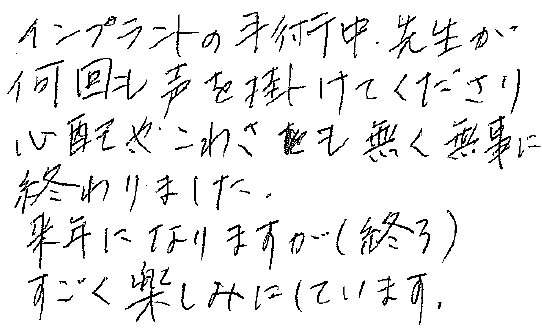 インプラントの手術中、先生が
何回も声を掛けてくださり
心配やこわさも無く無事に
終わりました。
来年になりますが(終る)
すごく楽しみにしています。